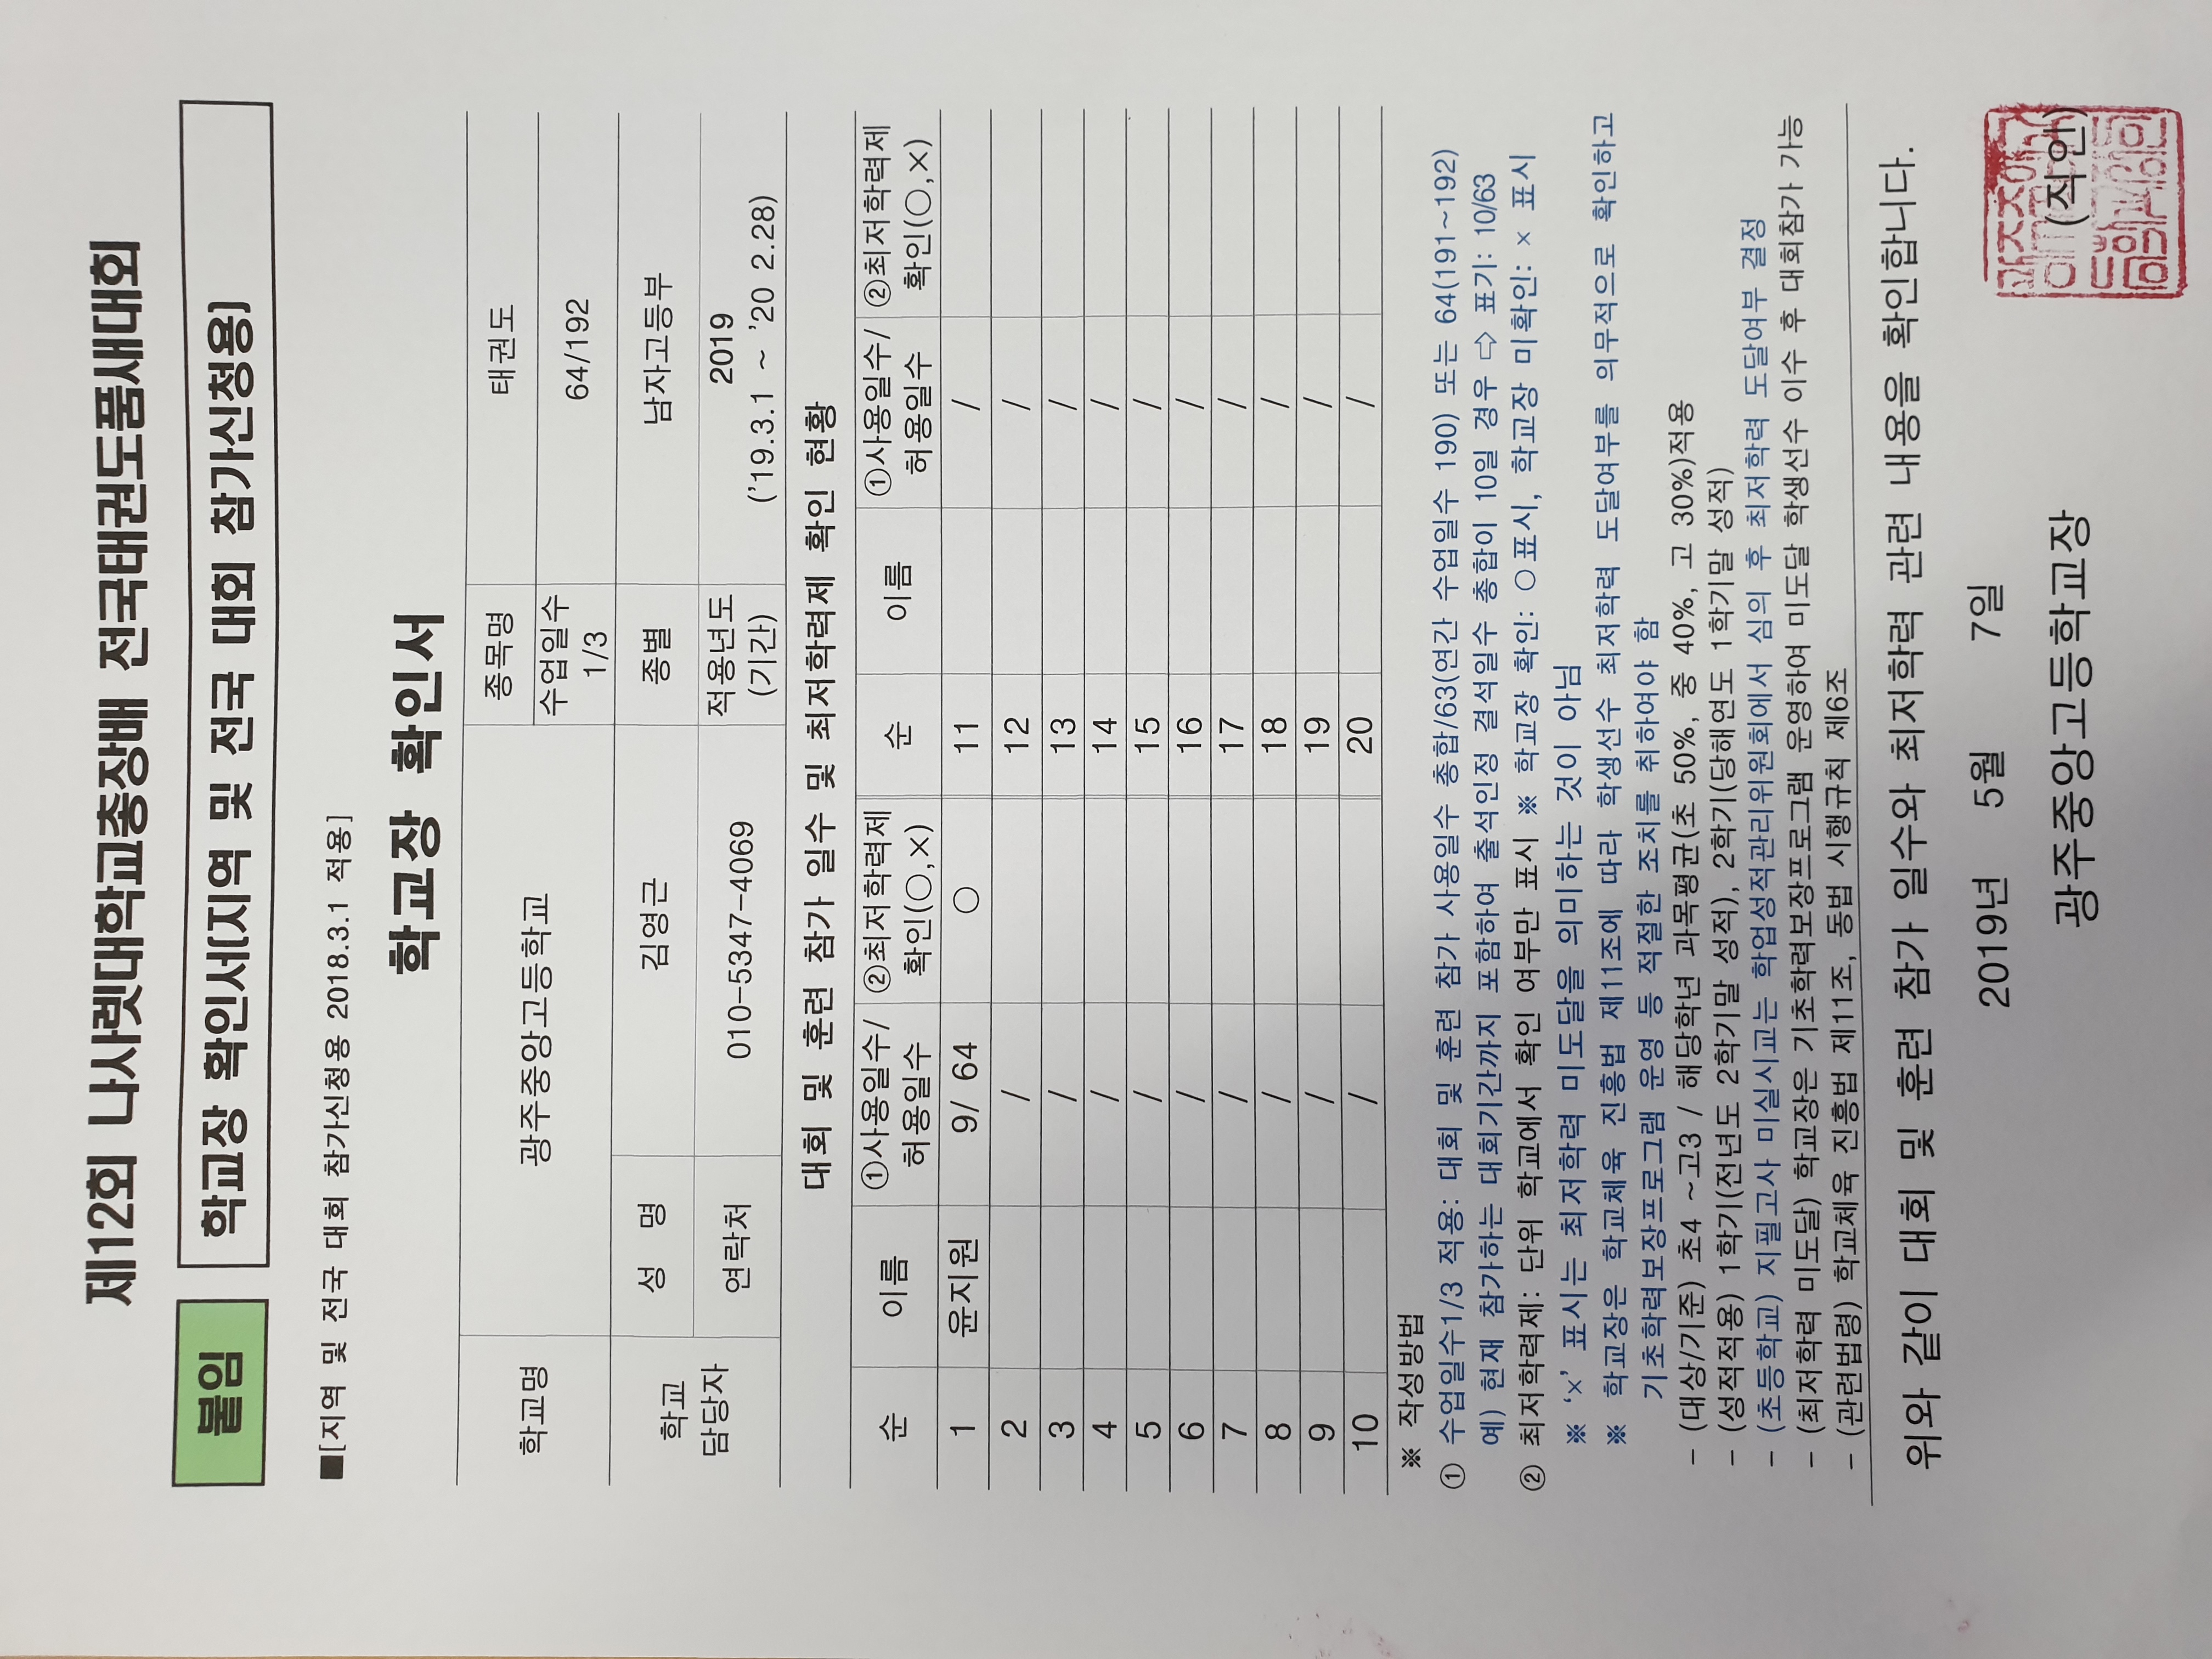 제12회 나사렛대학교총장배 전국태권도품새대회
붙임 학교장 확인서[지역 및 전국 대회 참가신청용]
■[지역 및 전국 대회 참가신청용 2018.3.1 적용]
학교장 확인서
학교명 광주중앙고등학교 종목명 태권도
수업일수 1/3 64/192
학교 담당자 성 명 김영근 종별 남자고등부
연락처 010-5347-4069 적용년도 (기간) 2019 ('19.3.1 ~ '20 2.28)
대회 및 훈련 참가 일수 및 최저학력제 확인 현황
순 이름 ①사용일수/허용일수 ②최저학력제 확인(○,×) 순 이름 ①사용일수/허용일수 ②최저학력제 확인(○,×)
1 윤지원 9/ 64 ○ 11 /
2 / 12 /
3 / 13 /
4 / 14 /
5 / 15 /
6 / 16 /
7 / 17 /
8 / 18 /
9 / 19 /
10 / 20 /
※ 작성방법
① 수업일수1/3 적용: 대회 및 훈련 참가 사용일수 총합/63(연간 수업일수 190) 또는 64(191~192)
예) 현재 참가하는 대회기간까지 포함하여 출석인정 결석일수 총합이 10일 경우 ⇨ 표기: 10/63
② 최저학력제: 단위 학교에서 확인 여부만 표시 ※ 학교장 확인: ○표시, 학교장 미확인: × 표시
※ '×' 표시는 최저학력 미도달을 의미하는 것이 아님
※ 학교장은 학교체육 진흥법 제11조에 따라 학생선수 최저학력 도달여부를 의무적으로 확인하고
기초학력보장프로그램 운영 등 적절한 조치를 취하여야 함
- (대상/기준) 초4 ~고3 / 해당학년 과목평균(초 50%, 중 40%, 고 30%)적용
- (성적적용) 1학기(전년도 2학기말 성적), 2학기(당해연도 1학기말 성적)
- (초등학교) 지필고사 미실시교는 학업성적관리위원회에서 심의 후 최저학력 도달여부 결정
- (최저학력 미도달) 학교장은 기초학력보장프로그램 운영하여 미도달 학생선수 이수 후 대회참가 가능
- (관련법령) 학교체육 진흥법 제11조, 동법 시행규칙 제6조
위와 같이 대회 및 훈련 참가 일수와 최저학력 관련 내용을 확인합니다.
2019년 5월 7일
광주중앙고등학교장 (직인)